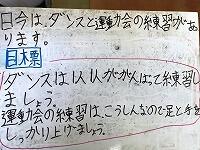 日今は、ダンスと運動会の練習があ
ります。
目標
ダンスは1人1人がんばって練習し
ましょう。
運動会の練習は、こうしんなので足と手を
しっかり上げましょう。